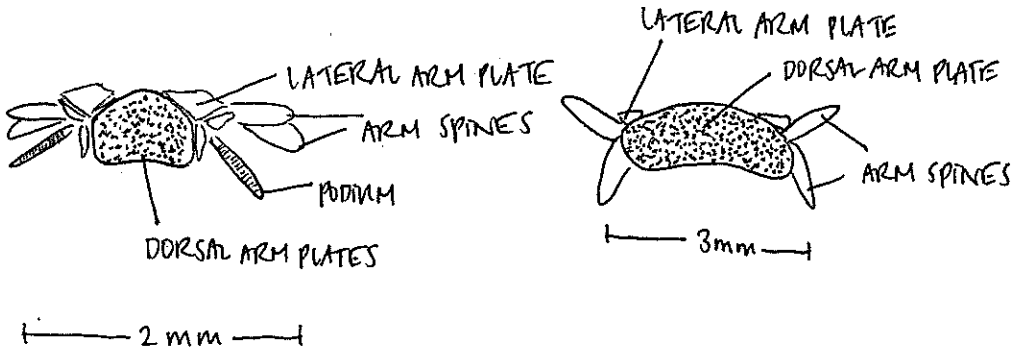 LATERAL ARM PLATE
ARM SPINES
PODIUM
DORSAL ARM PLATES
2 mm
LATERAL ARM PLATE
DORSAL ARM PLATE
ARM SPINES
3mm